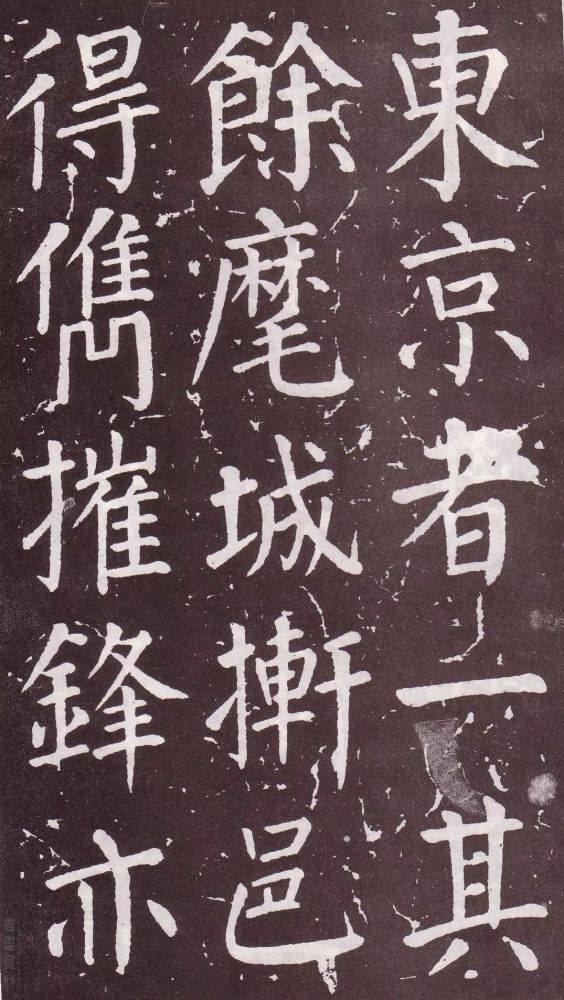 東京者一其
餘麾城摲邑
得儁摧鋒亦